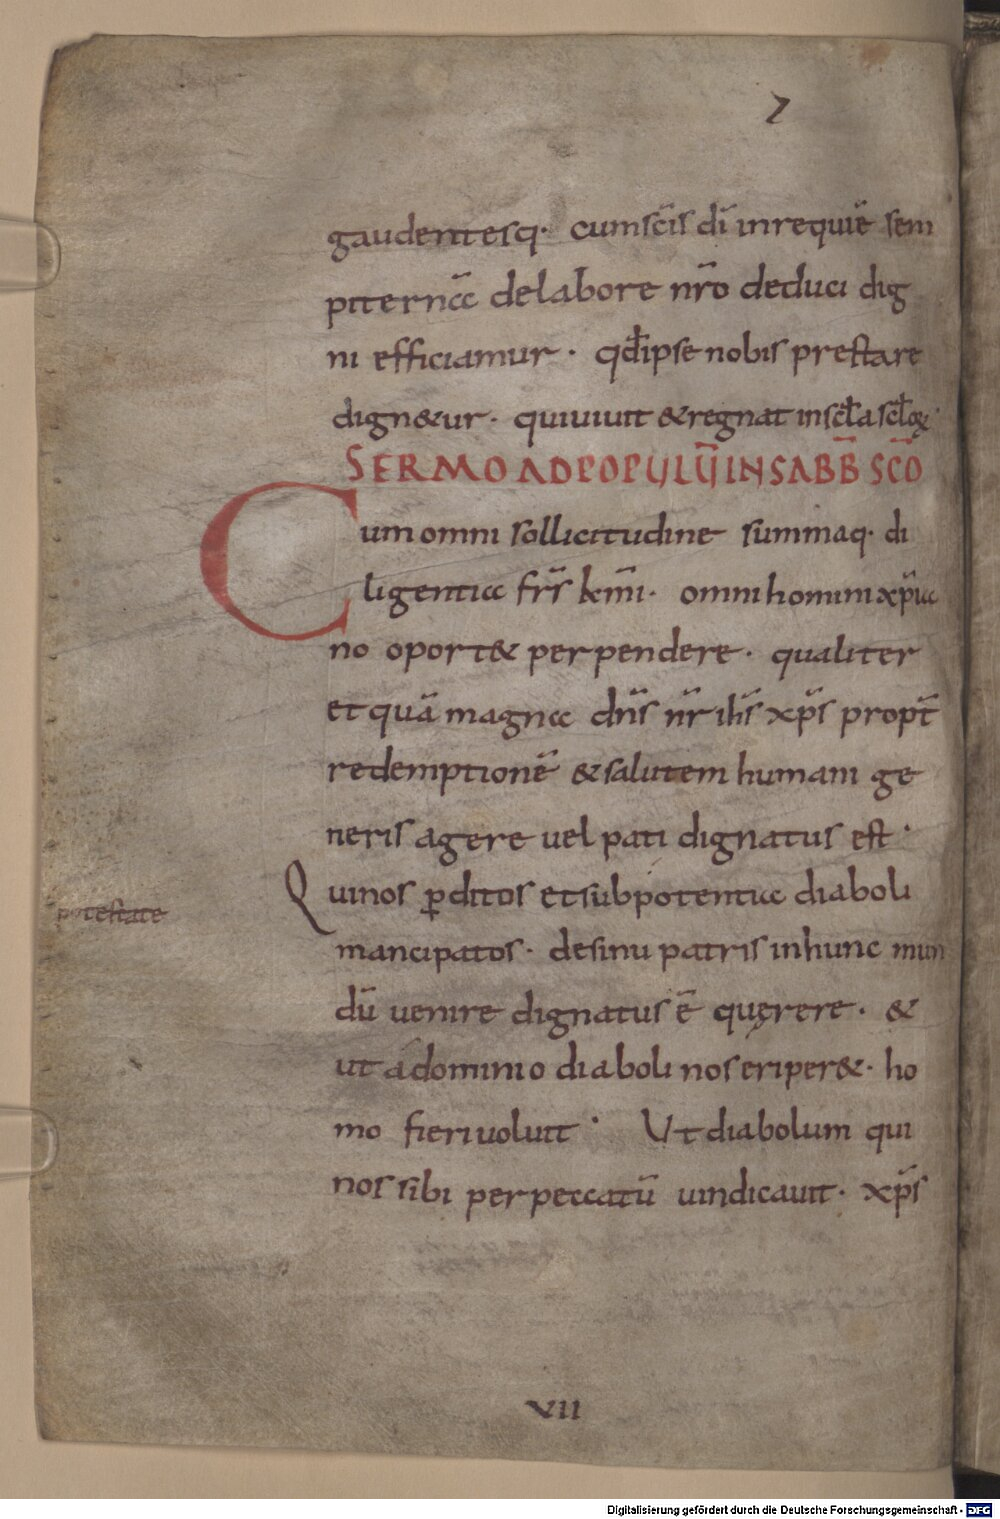 7
gaudentesq· cum sc̄is dī in requiē sem
piternā de labore nr̄o deduci dig
ni efficiamur · qđ ipse nobis prestare
dign&ur · qui uiuit & regnat in scła scłoꝝ·
SERMO AD POPULŪ IN SABB̄ SC̄O
Cum omni sollicitudine summaq· di
ligentia fr̄s km̄i · omni homini xp̄ia
no oport& perpendere · qualiter
et quā magna dn̄s nr̄ ih̄s xp̄s propt̄
redemptionē & salutem humani ge
neris agere uel pati dignatus est ·
Qui nos ꝑditos et sub potentia diaboli
potestate
mancipatos · de sinu patris in hunc mun
dū uenire dignatus ē quęrere · &
ut a dominio diaboli nos eriper& · ho
mo fieri uoluit · Ut diabolum qui
nos sibi per peccatū uindicauit · xp̄s
VII
Digitalisierung gefördert durch die Deutsche Forschungsgemeinschaft - DFG